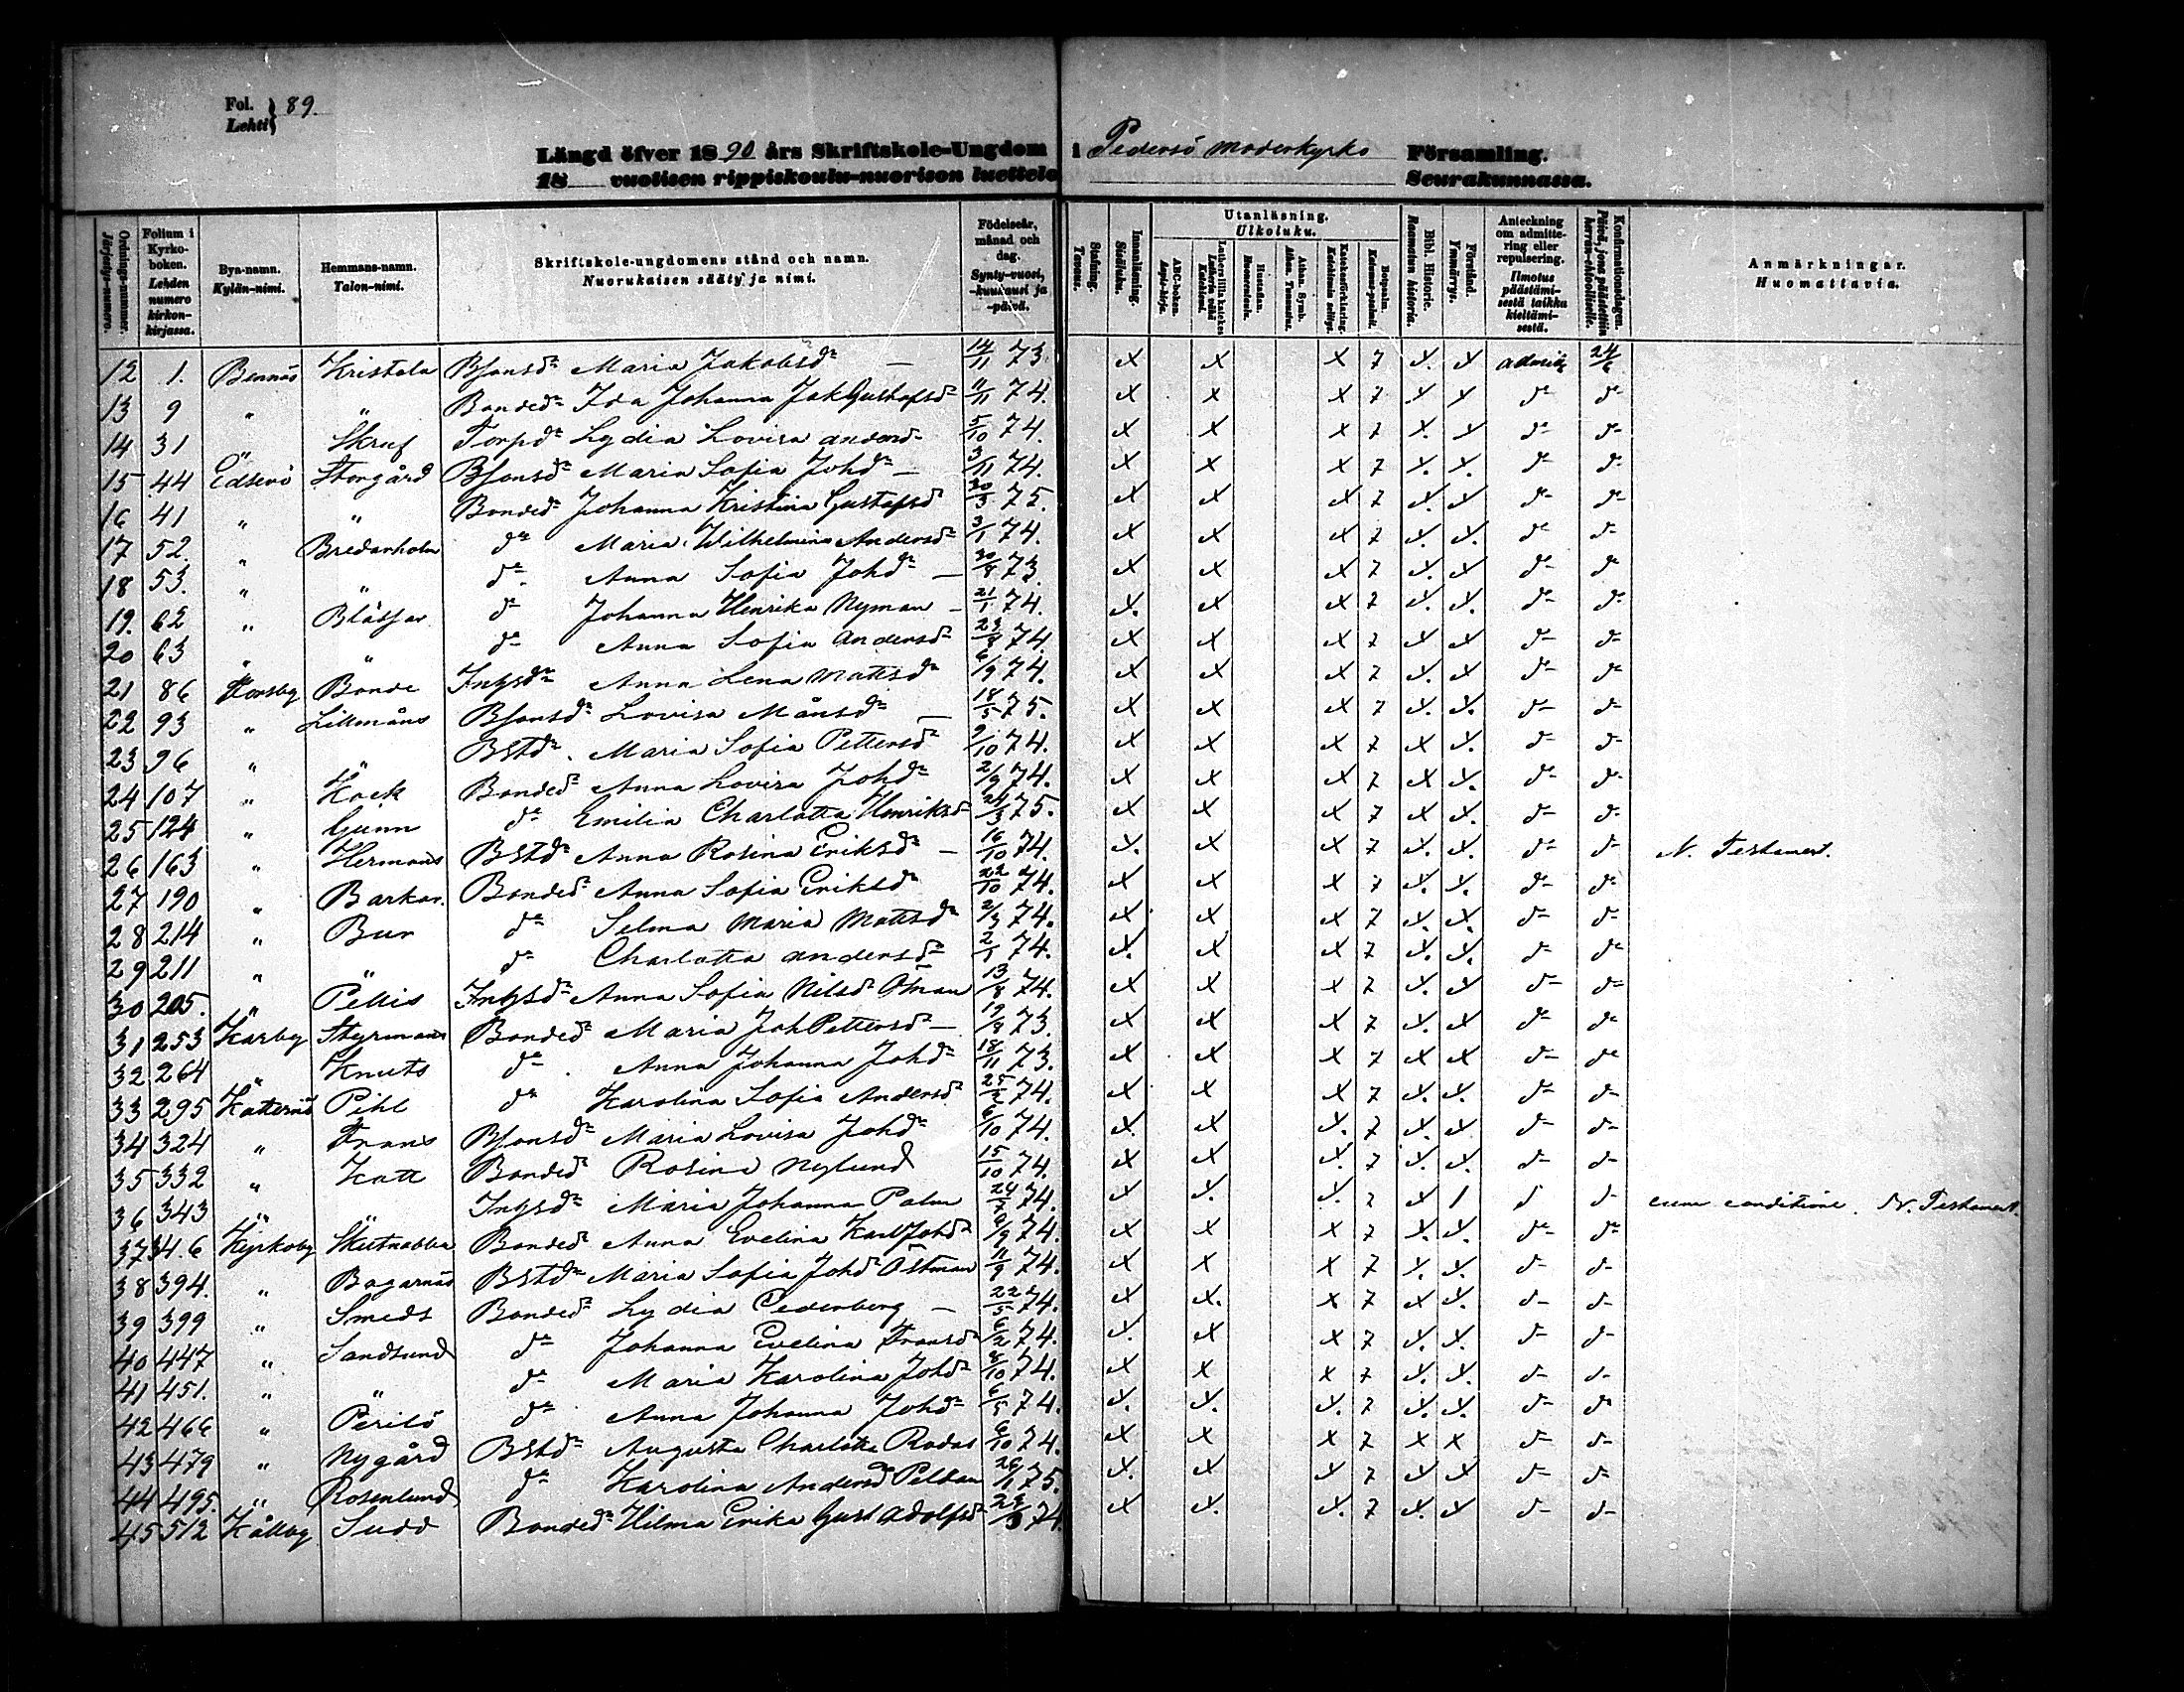 Fol. Lehti } 89.
Längd öfver 1890 års Skriftskole-Ungdom i Pedersö moderkyrko Församling.
18 vuotisen rippikoulu-nuorison luettelo Seurakunnassa.
Ordnings-nummer. Järjestys-numero.
Folium i Kyrko-boken. Lehden numero kirkon-kirjassa.
Bya-namn. Kylän-nimi.
Hemmans-namn. Talon-nimi.
Skriftskole-ungdomens stånd och namn. Nuorukaisen sääty ja nimi.
Födelseår, månad och dag. Synty-vuosi, -kuukausi ja -päivä.
Stafning. Tavaus.
Innanläsning. Sisäluku.
Utanläsning. Ulkoluku.
ABC-boken. Aapis-kirja.
Luthers lilla kateches. Lutherin vähä Katekismi.
Hustaflan. Huoneentaulu.
Athan. Symb. Athan. Tunnustus.
Katekesförklaring. Katekismin selitys.
Botpsalm. Katumus-psalmit.
Bibl. Historie. Raamatun historia.
Förstånd. Ymmärrys.
Anteckning om admittering eller repulsering. Ilmotus päästämisestä taikka kieltämisestä.
Konfirmationsdagen. Päivä, jona päästettiin herran-ehtoolliselle.
Anmärkningar. Huomattavia.
12 1. Bennäs Kristola Bsonsdr Maria Jakobsdr — 14/11 73. x x x 7 x. x admitt 24/6
13 9 " " Bondedr Ida Johanna Jak Gustafsdr 11/11 74. x x x 7 x x do do
14 31 " Skruf Torpdr Lydia Lovisa Andersdr 5/10 74. x x x 7 x. x do do
15 44 Edsevö Storgård Bsonsdr Maria Sofia Johdr — 3/11 74. x x x 7 x. x. do do
16 41 " " Bondedr Johanna Kristina Gustafsdr 20/3 75. x x x 7 x. x do do
17 52. " Bredarholm do Maria Wilhelmina Andersdr 3/1 74. x x x 7 x. x. do do
18 53. " " do Anna Sofia Johdr — 30/8 73. x x x 7 x. x do do
19. 62 " Blässar do Johanna Henrika Nyman — 21/1 74. x. x x 7 x. x. do do
20 63 " " do Anna Sofia Andersdr 23/8 74. x x x 7 x x do do
21 86 Forsby Bonde Inhysdr Anna Lena Mattsdr 6/9 74. x x x 7 x. x do do
22 93 " Lillmåns Bsonsdr Lovisa Månsdr — 18/5 75. x x x 7 x. x. do do
23 96 " " BStdr. Maria Sofia Pettersdr 9/10 74. x x x 7 x x. do do
24 107 " Kock Bondedr Anna Lovisa Johdr 2/9 74. x x x 7 x x. do do
25 124 " Gunn do Emilia Charlotta Henriksdr 24/3 75. x x x 7 x x. do do
26 163 " Hermans BStdr Anna Rosina Eriksdr — 16/10 74. x. x x 7 x. x. do do N. Testament.
27 190 " Barkar. Bondedr Anna Sofia Eriksdr 22/10 74. x x x 7 x. x. do do
28 214 " Bur do Selma Maria Mattsdr 2/3 74. x x x 7 x. x. do do
29 211 " " do Charlotta Andersdr 2/1 74. x. x x 7 x. x. do do
30 205. " Pellis Inhysdr Anna Sofia Nilsdr Östman 13/8 74. x x x 7 x. x do do
31 253 Karby Styrmans Bondedr Maria Joh Pettersdr — 19/8 73. x x x 7 x. x do do
32 264 " Knuts do Anna Johanna Johdr 18/11 73. x x x 7 x x do do
33 295 Katternö Pihl do Karolina Sofia Andersdr 25/2 74. x x x 7 x. x. do do
34 324 " Frans Bsonsdr Maria Lovisa Johdr 6/10 74. x. x x. 7 x. x do do
35 332 " Katt Bondedr Rosina Nylund 15/10 74. x x x. 7 x. x. do do
36 343 " " Inhysdr Maria Johanna Palm 24/7 74. x x. x. 7 x 1 do do cum conditione. N. Testament.
37 346 Kyrkoby Skutnabba Bondedr Anna Evelina Karl Johdr 6/9 74. x x x 7 x. x. do do
38 394. " Bagarnäs BStdr Maria Sofia Johdr Östman 11/9 74. x x x 7 x. x. do do
39 399 " Smeds Bondedr Lydia Cederberg — 22/5 74. x x. x 7 x x. do do
40 447 " Sandsund do Johanna Evelina Fransdr 6/2 74. x. x x 7 x. x. do do
41 451. " " do Maria Karolina Johdr 8/10 74. x x x 7 x. x. do do
42 466 " Perilö do Anna Johanna Johdr 6/5 74. x. x. x. 7 x. x. do do
43 479 " Nygård BStdr Augusta Charlotta Rodas 6/10 74. x x x 7 x x do do
44 495. " Rosenlund do Karolina Andersdr Peldan 26/1 75. x. x x 7 x x do do
45 512 Kållby Sudd Bondedr Hilma Erika Gust Adolfsdr 28/3 74. x x. x. 7 x. x do do